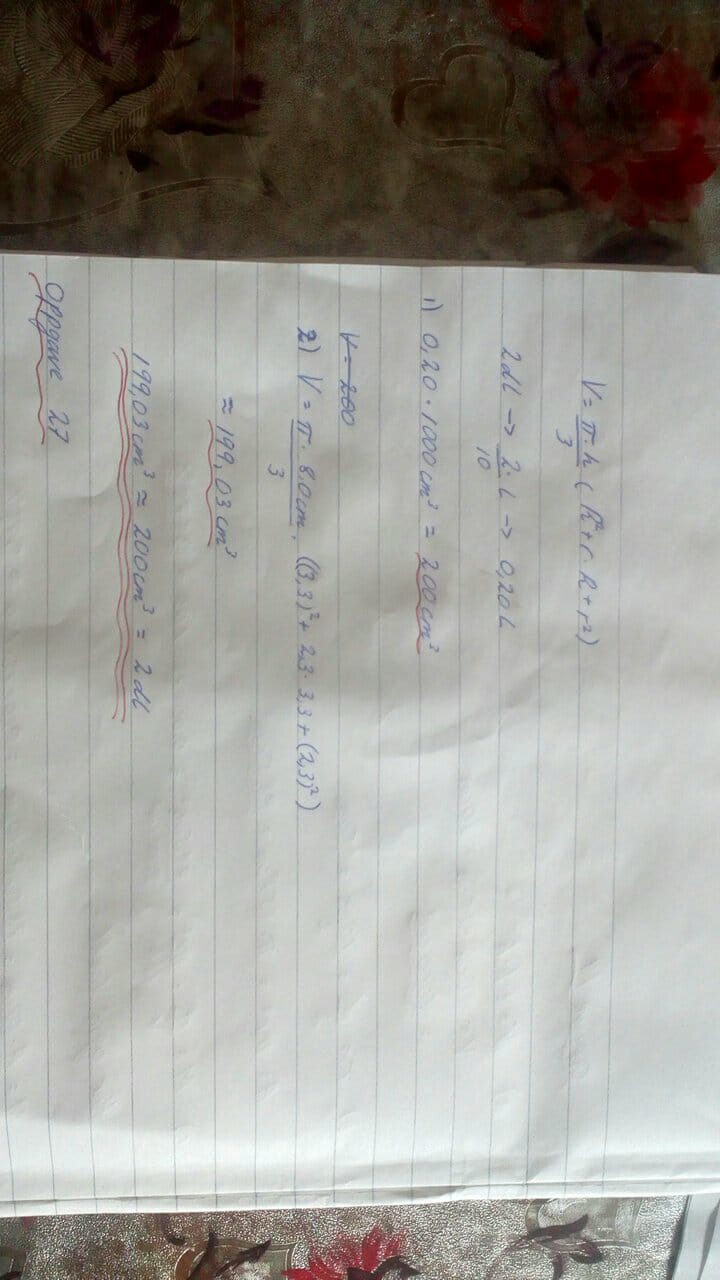 V = π·h/3 ( R² + r·R + r²)
2dl → 2/10 · L → 0,20L
1) 0,20 · 1000cm³ = 200cm³
V = 200
2) V = π · 8.0cm/3 · ((3,3)² + 2,3 · 3,3 + (2,3)²)
≈ 199,03cm³
199,03cm³ ≈ 200cm³ = 2dl
Oppgave 27